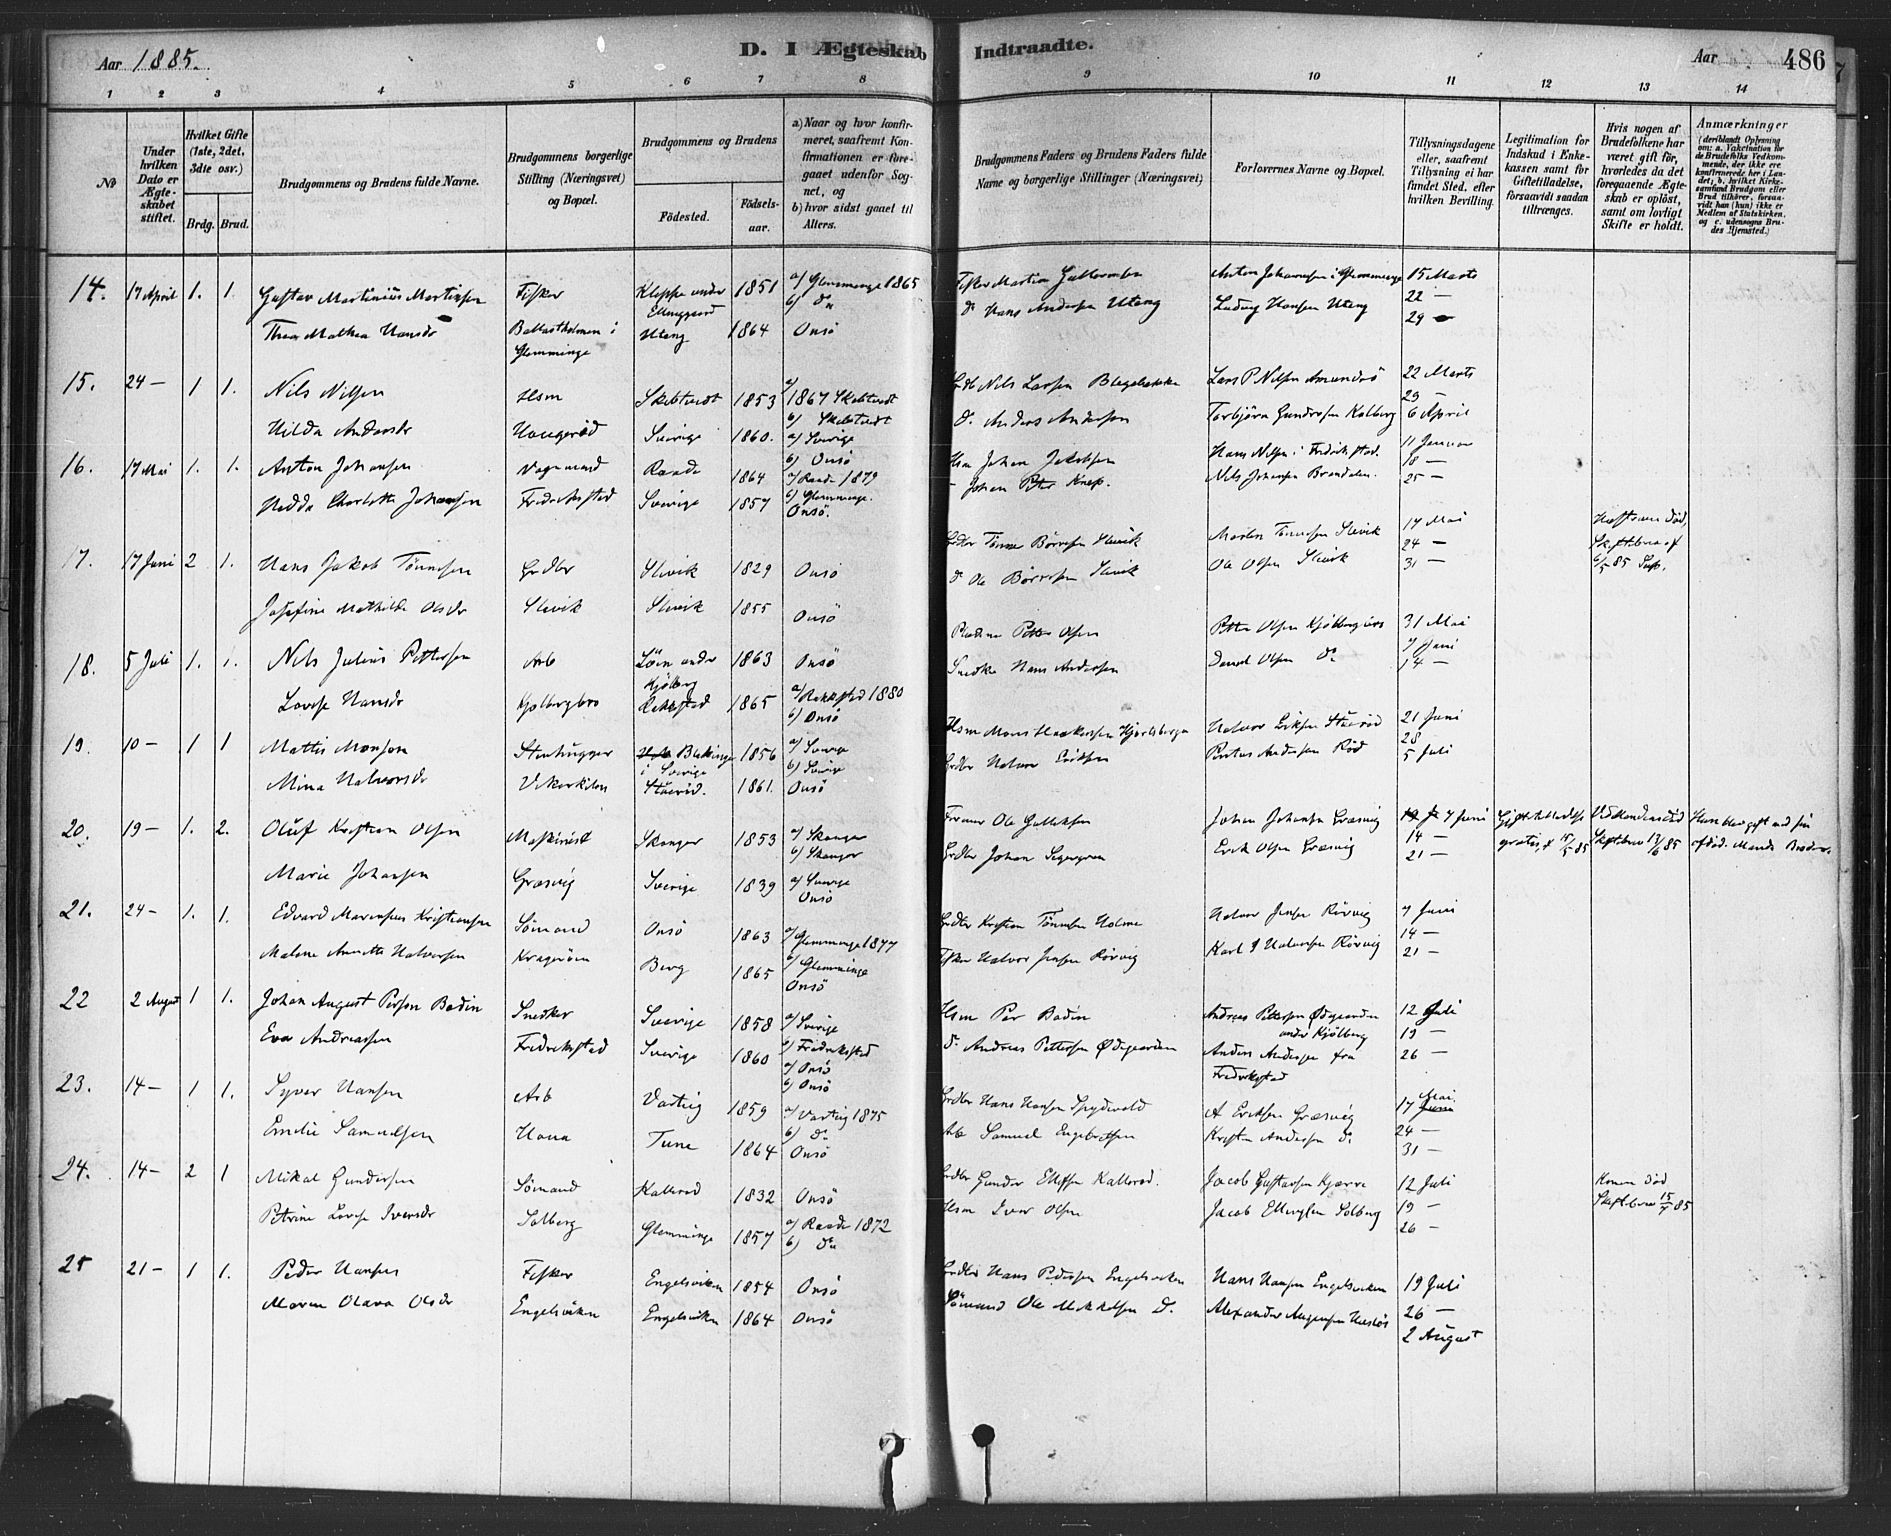 Aar 1885.
D. I Ægteskab Indtraadte.
Aar
486
1 2 3 4 5 6 7 8 9 10 11 12 13 14
No
Under hvilken Dato er Ægteskabet stiftet.
Hvilket Gifte (1ste, 2det, 3die osv.)
Brdg. Brud.
Brudgommens og Brudens fulde Navne.
Brudgommens borgerlige Stilling (Næringsvei) og Bopæl.
Brudgommens og Brudens
Fødested.
Fødselsaar.
a) Naar og hvor konfirmeret, saafremt Konfirmationen er foregaaet udenfor Sognet, og
b) hvor sidst gaaet til Alters.
Brudgommens Faders og Brudens Faders fulde Navne og borgerlige Stillinger (Næringsvei)
Forlovernes Navne og Bopæl.
Tillysningsdagene eller, saafremt Tillysning ei har fundet Sted, efter hvilken Bevilling.
Legitimation for Indskud i Enkekassen samt for Giftetilladelse, forsaavidt saadan tiltrænges.
Hvis nogen af Brudefolkene har været gift før, hvorledes da det foregaaende Ægteskab er opløst, samt om lovligt Skifte er holdt.
Anmærkninger
14. 17 April 1. 1. Gustav Martinius Martinsen Fisker Kleppe under Elinggaard 1851 a) Glemminge 1865 b) do Fisker Martin Gulbrandsen Anton Johannesen i Glemminge 15 Marts
22 —
Thea Mathea Hansdr Ballastholmen i Glemminge Uteng 1864 Onsö do Hans Andersen Uteng Ludvig Hansen Uteng
29
15. 24 — 1 1. Nils Nilsen Hsm Skibtvedt 1853 a) 1867 Skibtvedt b) Skibtvedt Nils Larsen Lars P Nilsen 22 Marts
29 —
Hilda Andersdr Haugeröd Sverige 1860. a) Sverige b) Onsö do Anders Andersen Torbjörn Gundersen Kolberg 6 April
16. 17 Mai 1. 1. Anton Johansen Vognmand Raade 1864 a) Raade 1879 b) Glemminge. Hsm Johan Jakobsen Hans Nilsen i Fredrikstad. 11 Januar
18 —
Hedda Charlotte Johansen Fredrikstad Sverige 1857 Onsö. Johan Peter Knap. Nils Johansen Brandalen. 25 —
17. 17 Juni 2 1. Hans Jakob Tönnesen Grdbr Slevik 1829 Onsö Grdbr Tönnes Börresen Slevik Martin Tönnesen Slevik 17 Mai
24 —
Hustruen död, Skiftebrev af 6/5 85
Josefine Mathilde Olsdr Slevik Slevik 1855 Onsö do Ole Börresen Slevik Ole Olsen Slevik 31 —
18. 5 Juli 1. 1. Nils Julius Pettersen Arb Löen under Kjölberg 1863 Onsö Petter Olsen Petter Olsen Kjölbergbro 31 Mai
7 Juni
Lovise Hansdr Kjölbergbro Rakkestad 1865 a) Rakkestad 1880 b) Onsö Snedker Hans Andersen Daniel Olsen do 14 —
19. 10 — 1 1 Mattis Monson Stenhugger Blekinge i Sverige 1856 a) Sverige b) Sverige Hsm Mons Halvor Eriksen Stueröd 21 Juni
28
Mina Halvorsdr Vikerkilen Stueröd. 1861. Onsö Grdbr Halvor Eriksen Andersen Röd 5 Juli
20. 19 — 1. 2. Oluf Kristian Olsen Maskinist Skanger 1853 a) Skanger b) Skanger Ole Gulliksen Johan Johansen Græsvig 7 Juni
14 —
Giftetilladelse gratis, d 15/5 85
Skiftebrev 13/6 85
Hun blev gift med sin afdöd. Mands Broder.
Marie Johansen Græsvig Sverige 1839 a) Sverige Onsö Grdbr Johan Erik Olsen Græsvig 21 —
21. 24 — 1. 1. Edvard Marensius Kristiansen Sömand Onsö 1863 a) Glemminge 1877 b) Glemminge Grdbr Kristian Tönnesen Holme Halvor Jensen Rörvig 7 Juni
14 —
Malene Annette Halvorsen Kragerøen Berg 1865 Onsö Fisker Halvor Jensen Rörvig Karl J Halvorsen Rörvig 21 —
22 2 August 1 1. Johan August Person Bodin Snedker Sverige 1858 a) Sverige b) Fredrikstad Hsm Per Bodin Andreas Pettersen Ödegaarden under Kjölberg 12 Juli
19 —
Eva Andreassen Fredrikstad Sverige 1860 a) Onsö b) Onsö do Andreas Pettersen Ödegaarden Anders Andersen fra Fredrikstad 26 —
23. 14 — 1 1. Syver Hansen Arb Varteig 1859 a) Varteig 1875 b) do Grdbr Hans Hansen Spydevold A Eriksen Græsvig 17 Mai
24 —
Emilie Samuelsen Tune 1864 Onsö Arb Samuel Engebretsen Kristian Andersen do 31 —
24. 14 — 2 1 Mikal Gundersen Sömand Kalleröd 1832 Onsö Grdbr Gunder Ellefsen Kalleröd. Jacob Gustavsen Kjærre 12 Juli
19 —
Konen död Skiftebrev 15/7 85
Petrine Lovise Iversdr Solberg Glemminge 1857 a) Raade 1872 b) do Hsm Iver Olsen Jacob Ellingsen Solberg 26 —
25 21 — 1 1. Peder Hansen Fisker Engelsviken 1854 Onsö Grdbr Hans Pedersen Engelsviken Hans Hansen Engelsviken 19 Juli
26 —
Maren Olava Olsdr Engelsviken Engelsviken 1864 Onsö Sömand Ole Mikkelsen do. Alexander
2 August